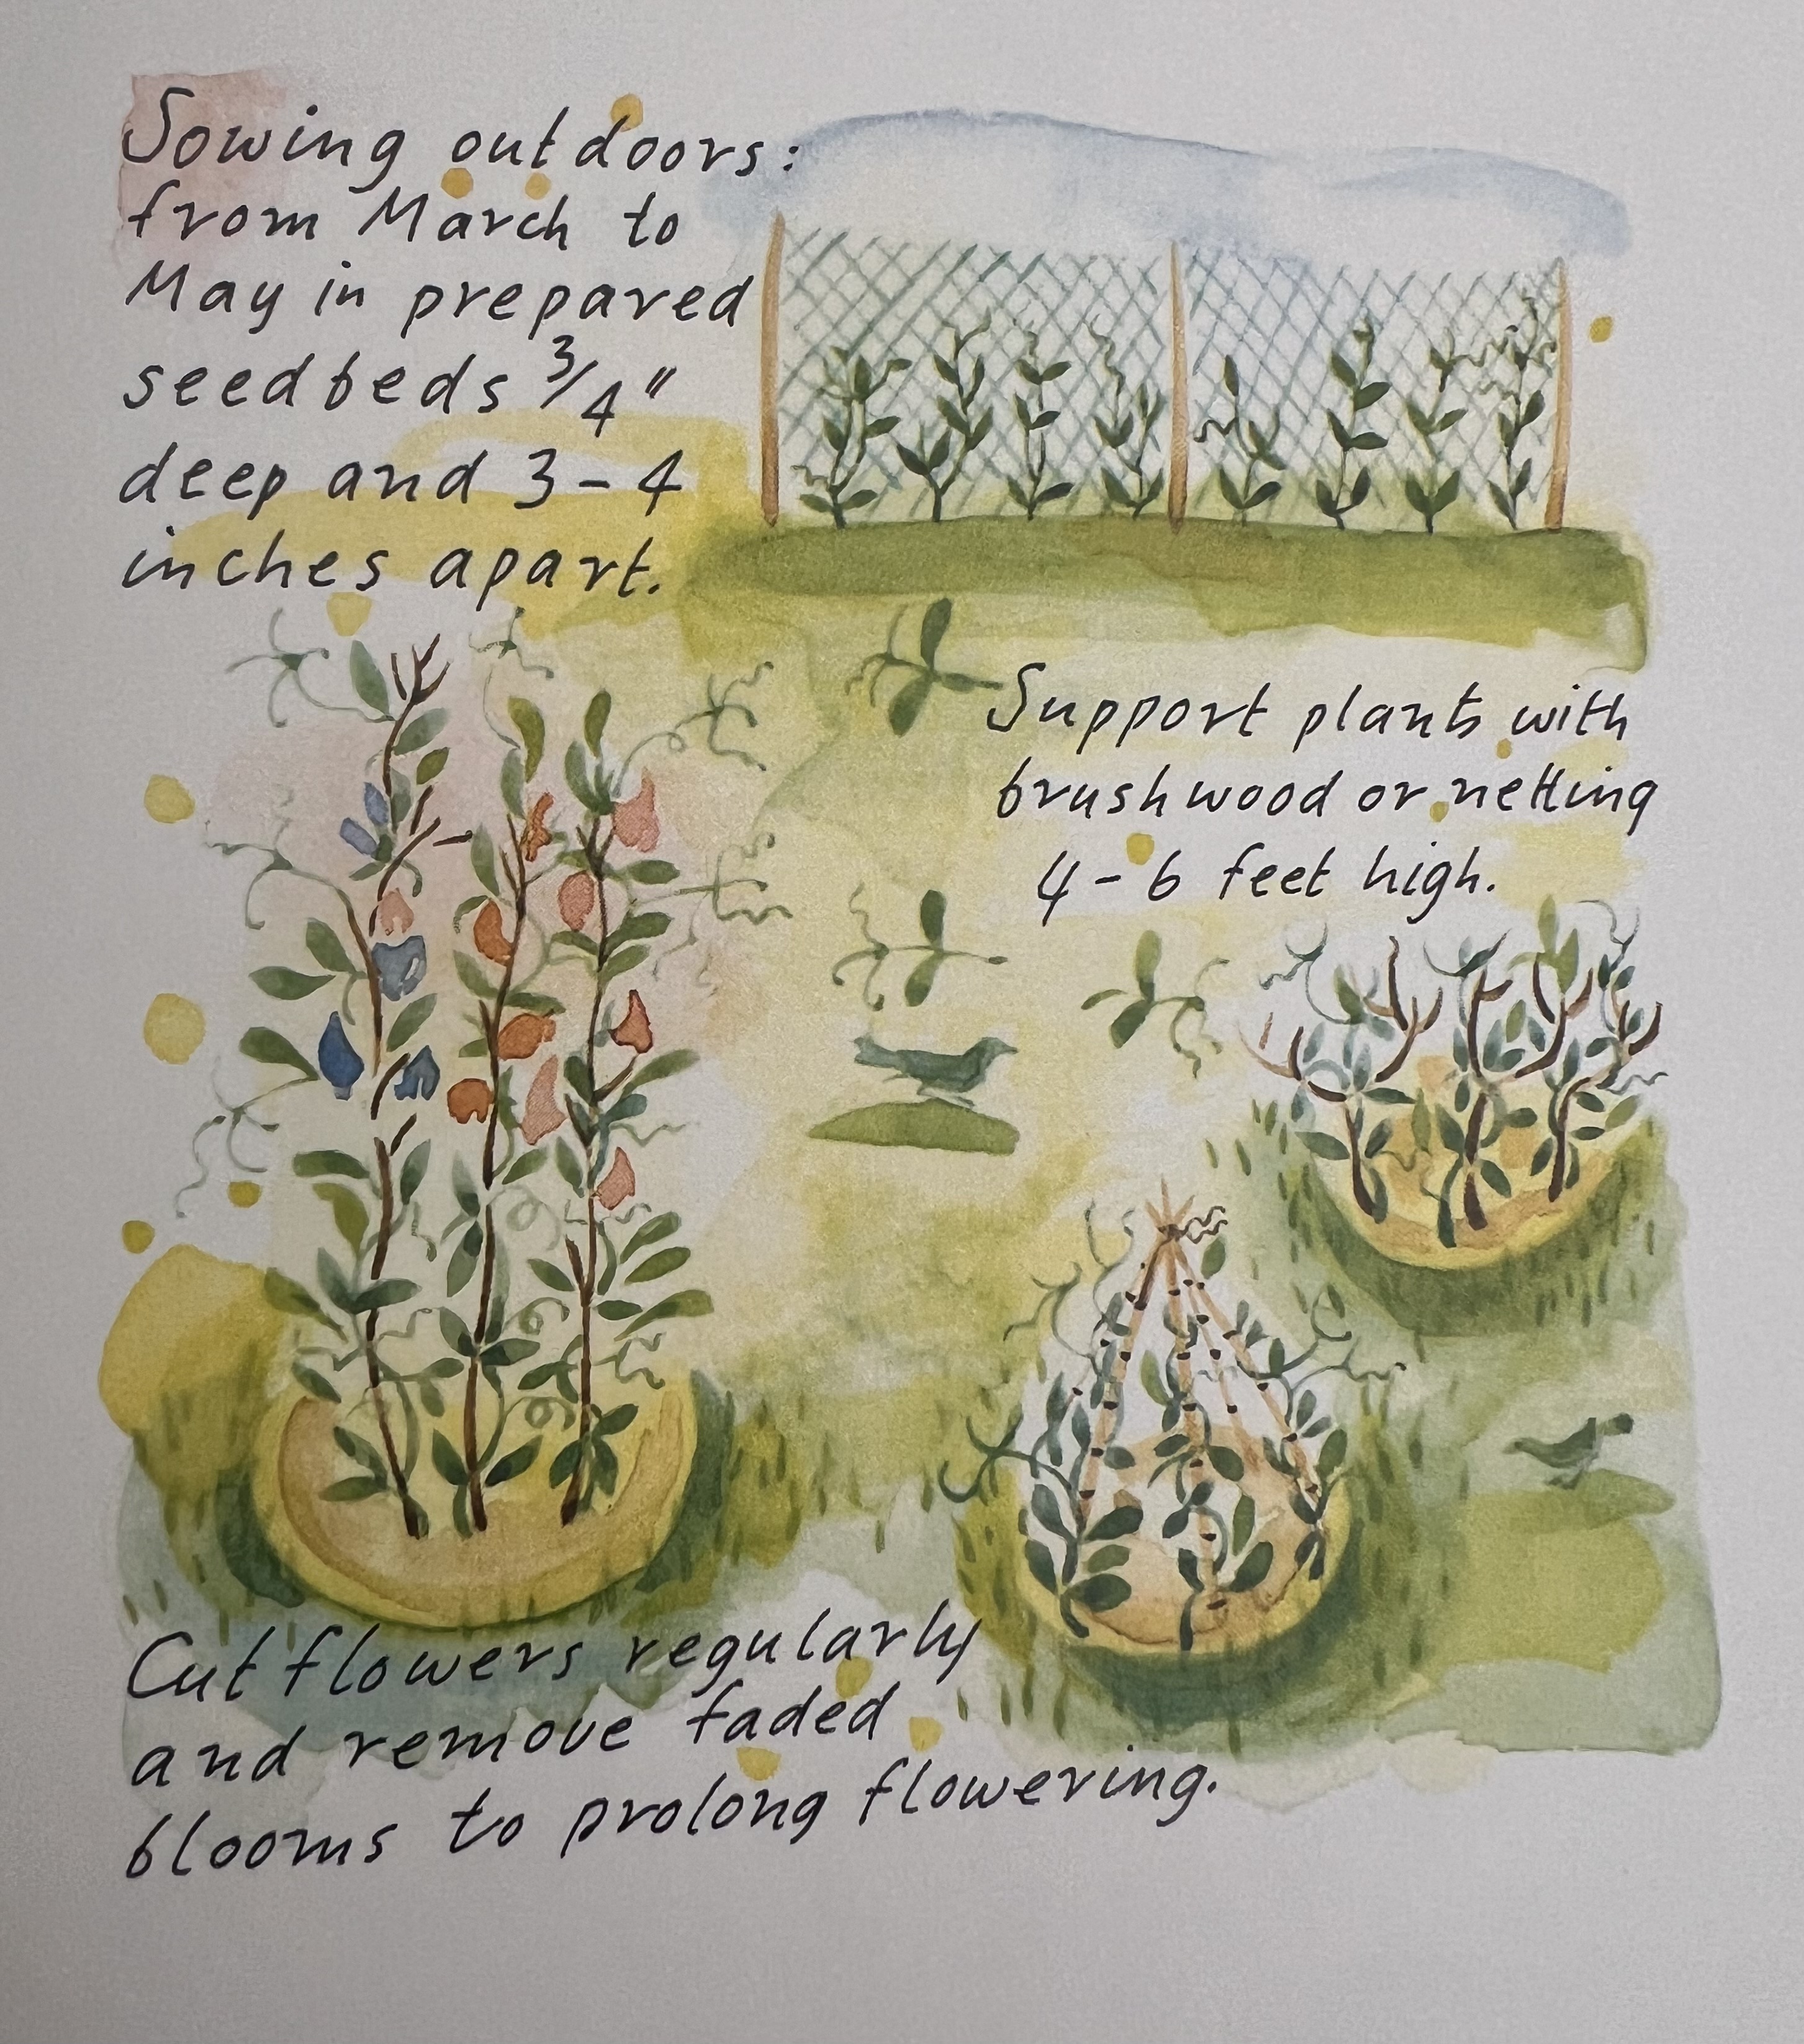 Sowing outdoors:
from March to
May in prepared
seedbeds 3/4"
deep and 3-4
inches apart.
Support plants with
brushwood or netting
4-6 feet high.
Cut flowers regularly
and remove faded
blooms to prolong flowering.